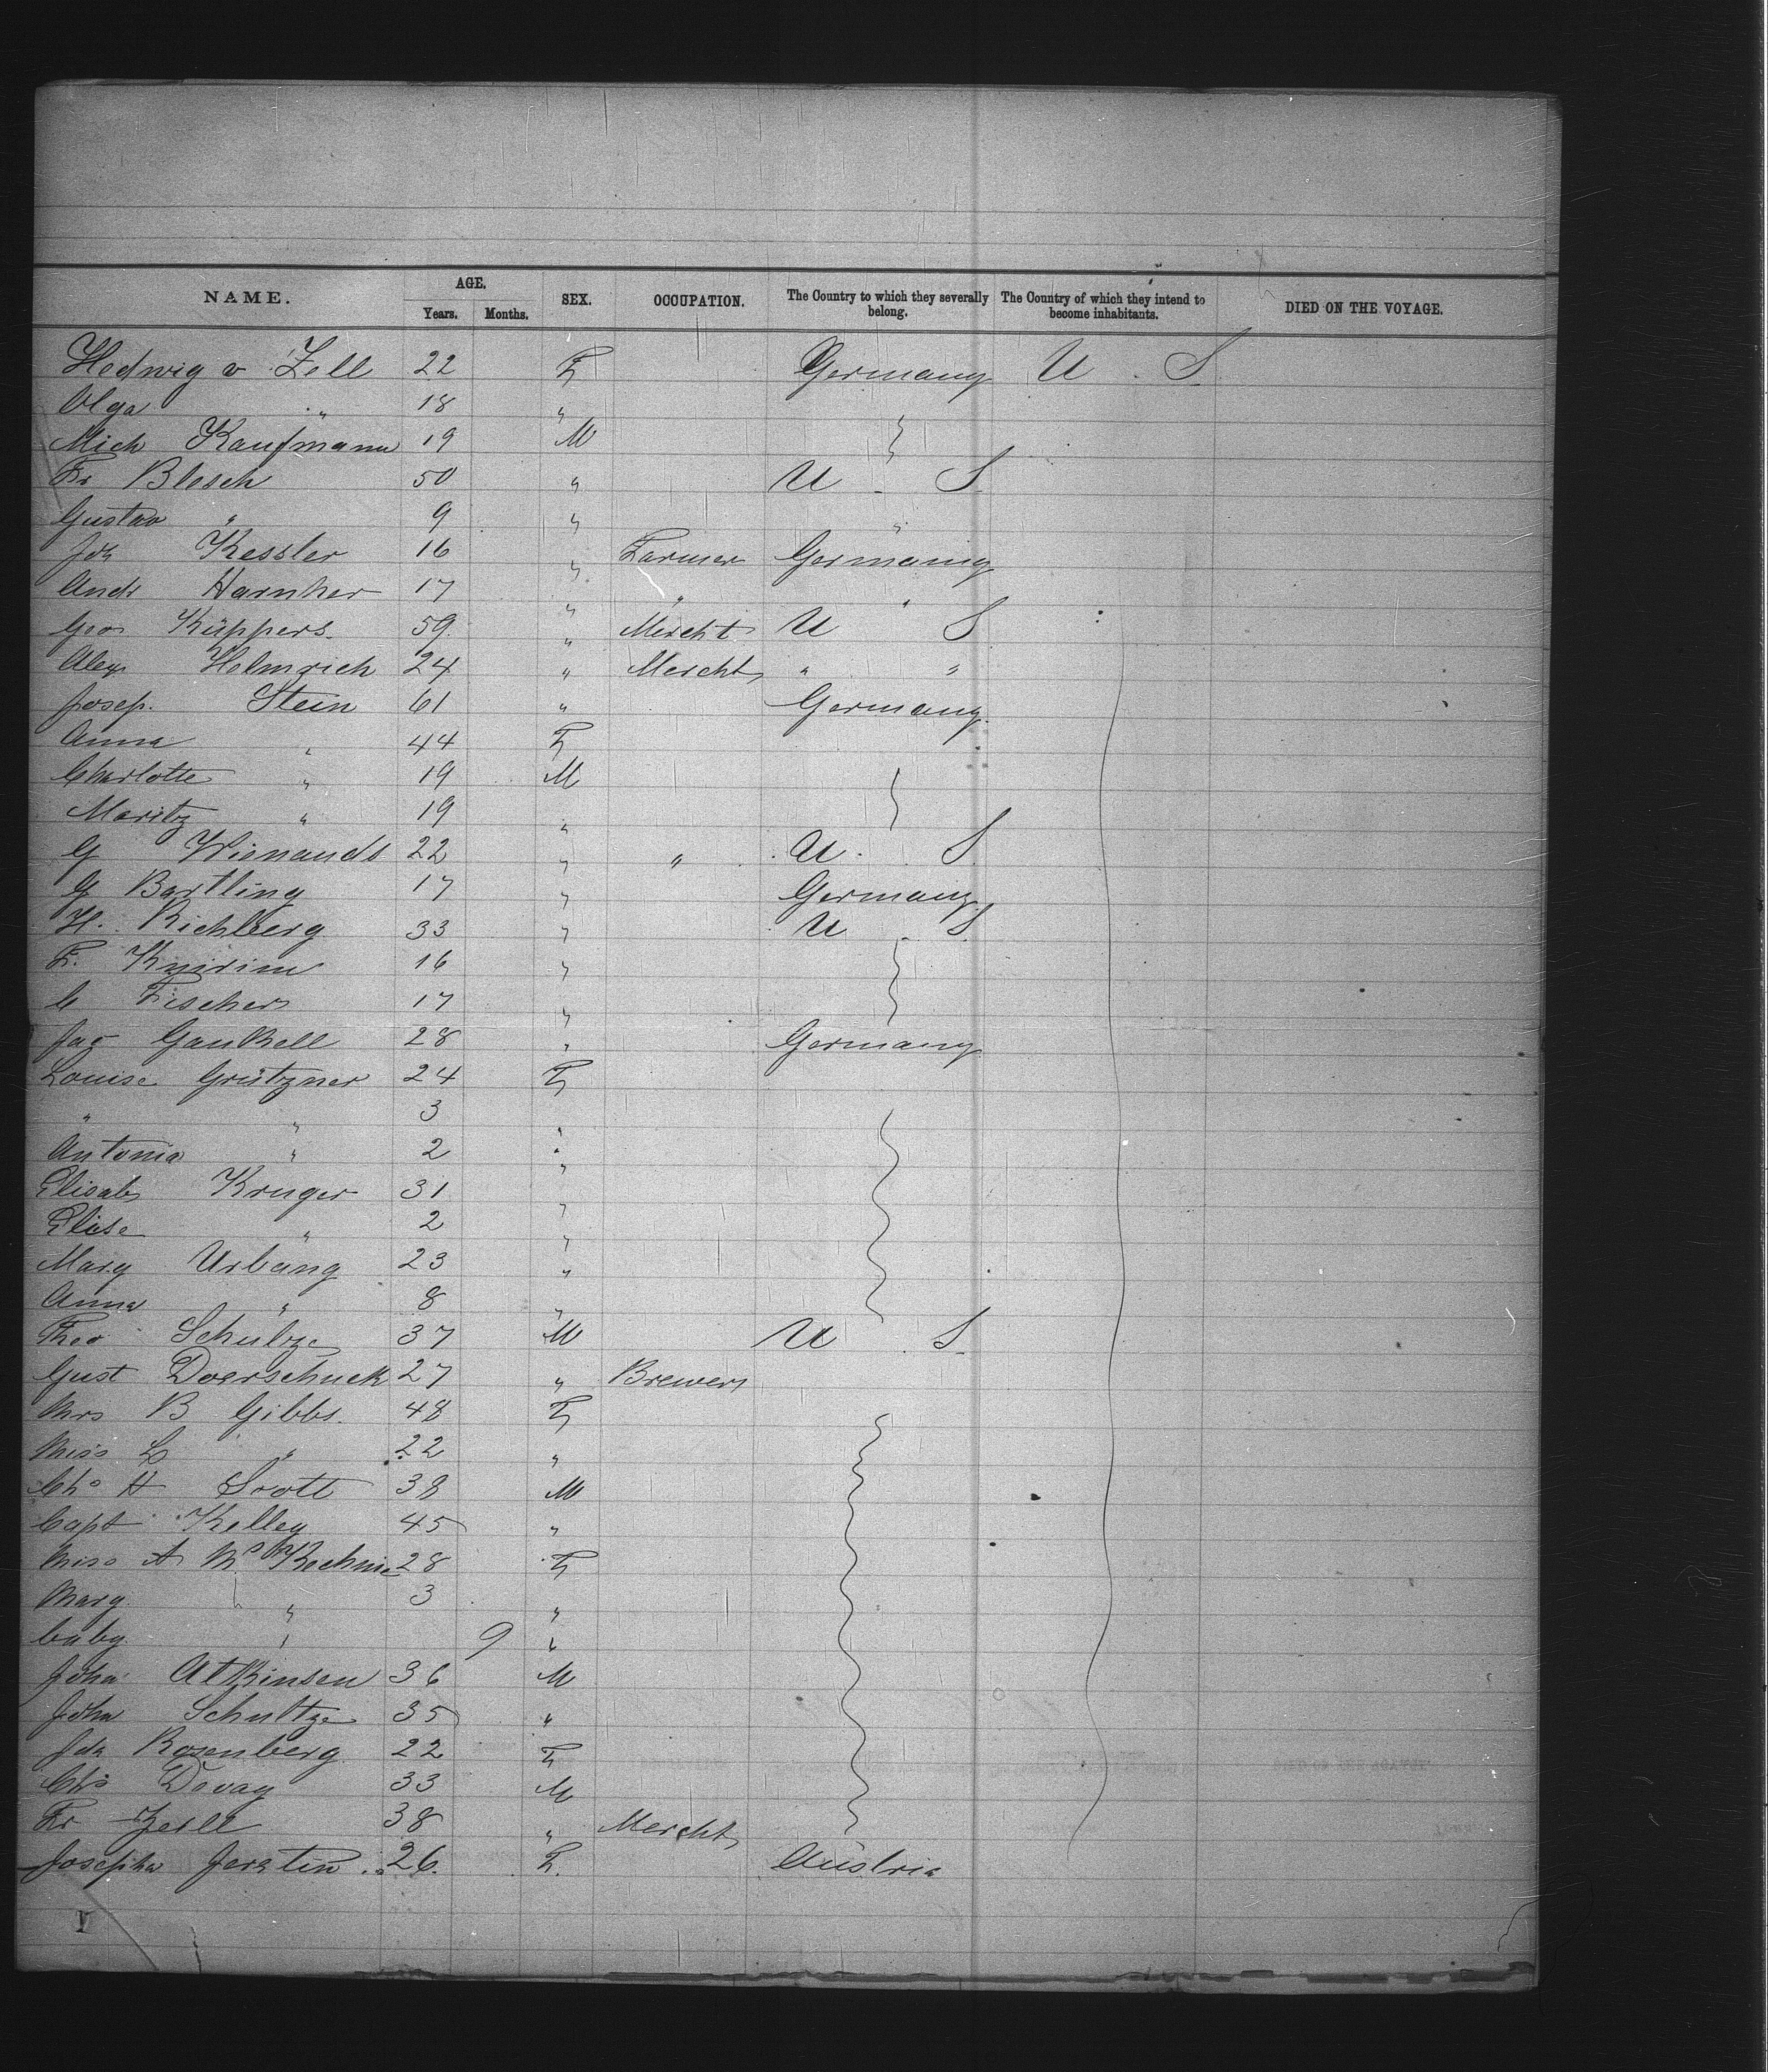 NAME. AGE. SEX. OCCUPATION. The Country to which they severally belong. The Country of which they intend to become inhabitants. DIED ON THE VOYAGE.
Years. Months.
Hedwig v Zell 22 F Germany U S
Olga " 18 "
Mich Kaufmann 19 M
Fr Blesch 50 " U S
Gustav " 9 " "
Joh Kessler 16 " Farmer Germany
Andr Harnher 17 " " "
Geo Küppers 59 " Mercht U S
Alex Helmrich 24 " Mercht " "
Josep. Stein 61 " Germany
Anna " 44 F
Charlotte " 19 M
Moritz " 19 "
G Wienands 22 " " U S
G Bartling 17 " Germany
H. Richberg 33 " U S
F. Knirim 16 "
C Fischer 17 "
Jac Gaukell 28 " Germany
Louise Grützner 24 F
" " 3 "
Antonia " 2 "
Elisab Kruger 31 "
Elise " 2 "
Mary Urbang 23 "
Anna " 8 "
Theo Schultze 37 M U S
Gust Doerschuck 27 " Brewer
Mrs B Gibbs. 48 F
Miss L " 22 "
Chs H Scott 38 M
Capt Kelley 45 "
Miss A McKechnie 28 F
Marg. " 3 "
baby " 9 "
John Atkinson 36 M
John Schultze 35 "
Ida Rosenberg 22 F
Chs Devay 33 M
Fr Zeill 38 " Mercht
Josepha Jerstin 26. F. Austria